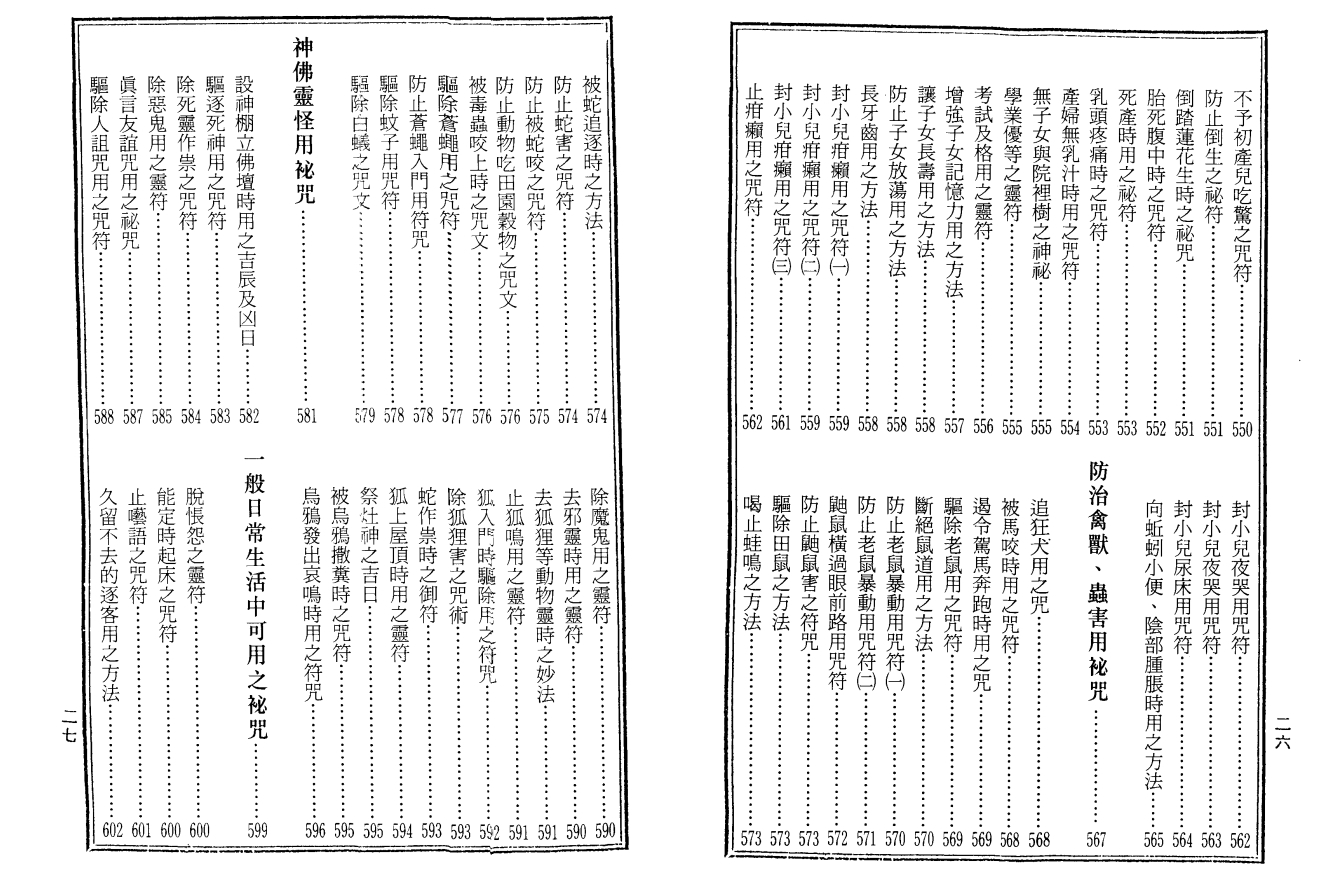 不予初產兒吃驚之咒符……550
防止倒生之秘符……551
倒踏蓮花生時之秘咒……551
胎死腹中時之咒符……552
死產時用之秘符……553
乳頭疼痛時之咒符……553
產婦無乳汁時用之咒符……554
無子女與院裡樹之神祕……555
學業優等之靈符……555
考試及格用之靈符……556
增強子女記憶力用之方法……557
讓子女長壽用之方法……558
防止子女放蕩用之方法……558
長牙齒用之方法……558
封小兒疳癩用之咒符㈠……559
封小兒疳癩用之咒符㈡……559
封小兒疳癩用之咒符㈢……561
止疳癩用之咒符……562
封小兒夜哭用咒符……562
封小兒夜哭用咒符……563
封小兒尿床用咒符……564
向蚯蚓小便、陰部腫脹時用之方法……565
防治禽獸、蟲害用祕咒……567
追狂犬用之咒……568
被馬咬時用之咒符……568
遏令駕馬奔跑時用之咒……569
驅除老鼠用之咒符……569
斷絕鼠道用之方法……570
防止老鼠暴動用咒符㈠……570
防止老鼠暴動用咒符㈡……571
鼬鼠橫過眼前路用咒符……572
防止鼬鼠害之符咒……573
驅除田鼠之方法……573
喝止蛙鳴之方法……573
二六
被蛇追逐時之方法……574
防止蛇害之咒符……574
防止被蛇咬之咒符……575
防止動物吃田園穀物之咒文……576
被毒蟲咬上時之咒文……576
驅除蒼蠅用之咒符……577
防止蒼蠅入門用符咒……578
驅除蚊子用咒符……578
驅除白蟻之咒文……579
神佛靈怪用祕咒……581
設神棚立佛壇時用之吉辰及凶日……582
驅逐死神用之咒符……583
除死靈作祟之咒符……584
除惡鬼用之靈符……585
眞言友誼咒用之祕咒……587
驅除人詛咒用之咒符……588
除魔鬼用之靈符……590
去邪靈時用之靈符……590
去狐狸等動物靈時之妙法……591
止狐鳴用之靈符……591
狐入門時驅除用之符咒……592
除狐狸害之咒術……593
蛇作祟時之御符……593
狐上屋頂時用之靈符……594
祭灶神之吉日……595
被烏鴉撒糞時之咒符……595
烏鴉發出哀鳴時用之符咒……596
一般日常生活中可用之祕咒……599
脫悵怨之靈符……600
能定時起床之咒符……600
止囈語之咒符……601
久留不去的逐客用之方法……602
二七